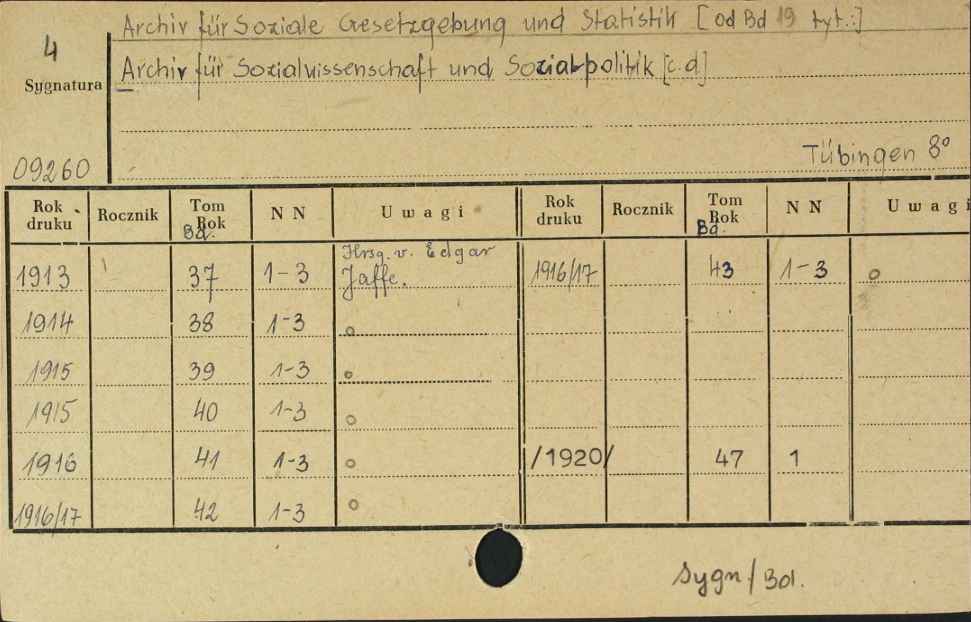 Archiv für Soziale Gesetzgebung und Statistik [od Bd 19 tyt.:]
4
Sygnatura
Archiv für Sozialwissenschaft und Sozialpolitik [c.d]
09260
Tübingen 8°
Rok druku Rocznik Tom Rok Bd. N N Uwagi Rok druku Rocznik Tom Rok Bd. N N Uwagi
1913 37 1-3 Hrsg. v. Edgar Jaffe. 1916/17 43 1-3
1914 38 1-3
1915 39 1-3
1915 40 1-3
1916 41 1-3 /1920/ 47 1
1916/17 42 1-3
Sygn/Bd.